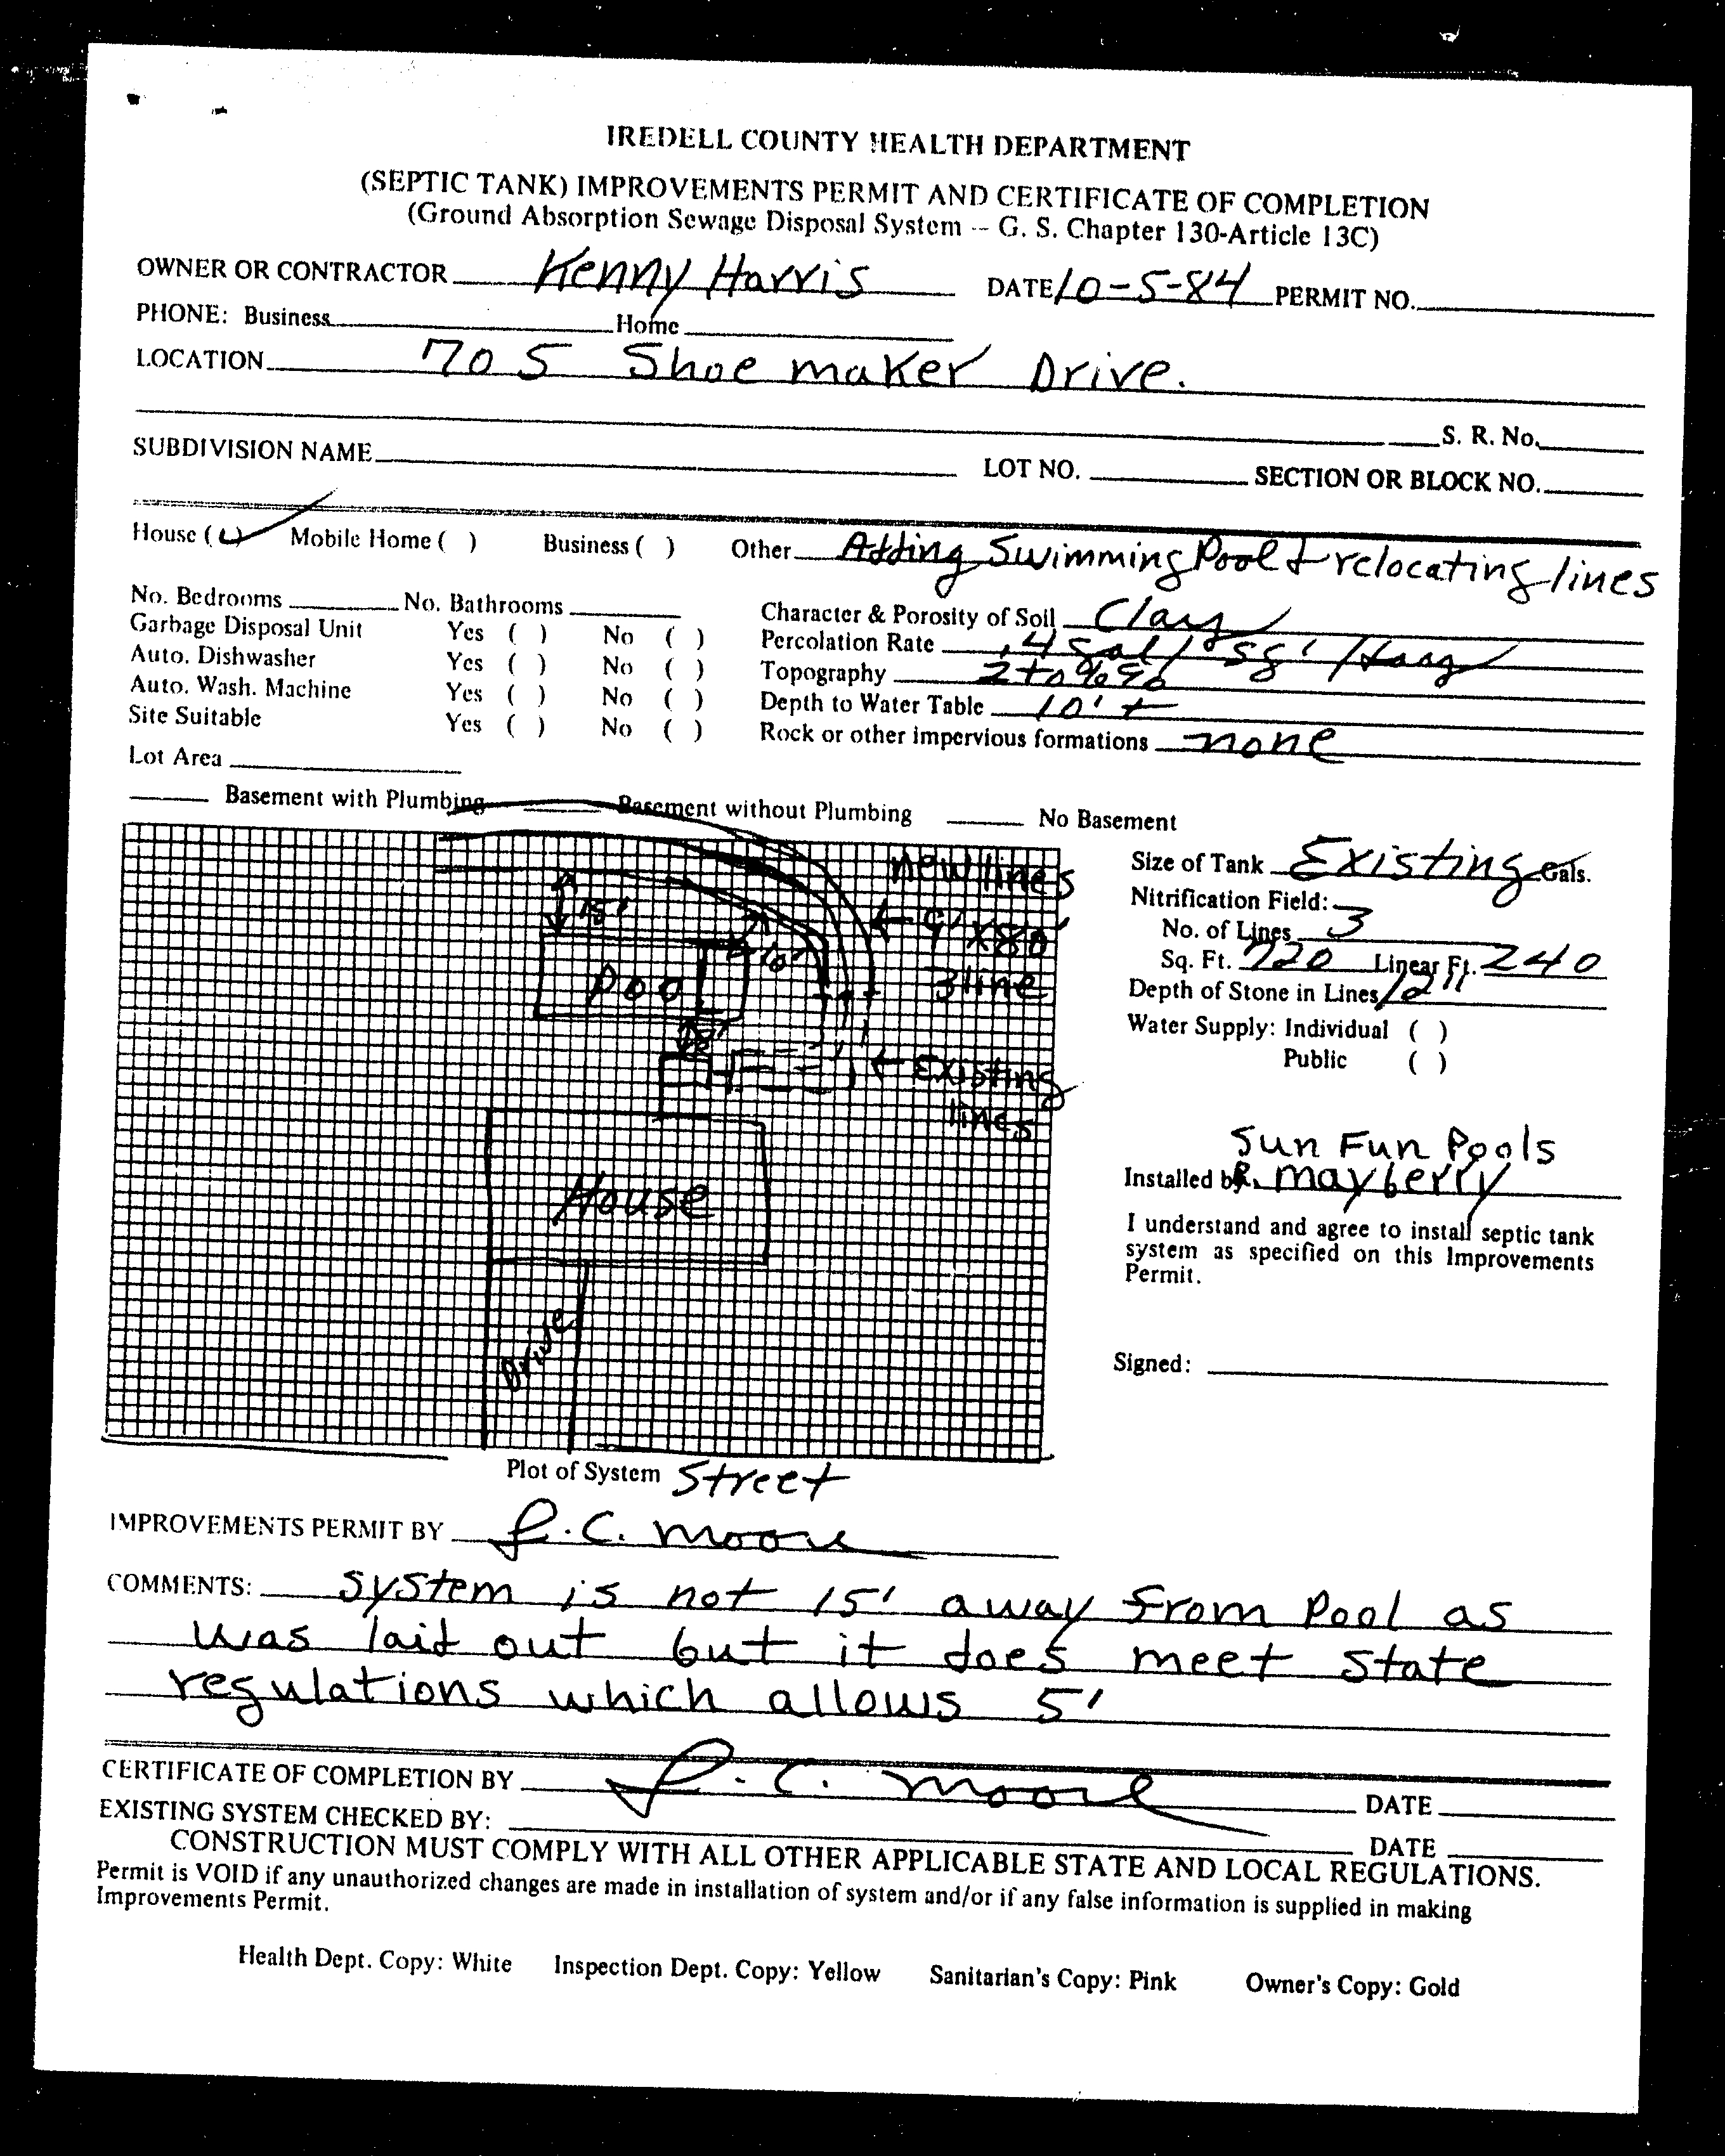 IREDELL COUNTY HEALTH DEPARTMENT
(SEPTIC TANK) IMPROVEMENTS PERMIT AND CERTIFICATE OF COMPLETION
(Ground Absorption Sewage Disposal System -- G. S. Chapter 130-Article 13C)
OWNER OR CONTRACTOR Kenny Harris DATE 10-5-84 PERMIT NO.
PHONE: Business Home
LOCATION 705 Shoe maker Drive.
S. R. No.
SUBDIVISION NAME LOT NO. SECTION OR BLOCK NO.
House ( ) Mobile Home ( ) Business ( ) Other Adding Swimming Pool & relocating lines
No. Bedrooms No. Bathrooms
Garbage Disposal Unit Yes ( ) No ( )
Auto. Dishwasher Yes ( ) No ( )
Auto. Wash. Machine Yes ( ) No ( )
Site Suitable Yes ( ) No ( )
Lot Area
Character & Porosity of Soil Clay
Percolation Rate .4 gal/sq'/
Topography 2 to
Depth to Water Table 10' +
Rock or other impervious formations none
Basement with Plumbing Basement without Plumbing No Basement
new lines
15'
10'
3 line
Pool
8'
Existing
lines
House
Drive
Size of Tank Existing Gals.
Nitrification Field:
No. of Lines 3
Sq. Ft. 720 Linear Ft. 240
Depth of Stone in Lines 12"
Water Supply: Individual ( )
Public ( )
Sun Fun Pools
Installed by R. mayberry
I understand and agree to install septic tank
system as specified on this Improvements
Permit.
Signed:
Plot of System Street
IMPROVEMENTS PERMIT BY L.C. Moore
COMMENTS: System is not 15' away from Pool as
was laid out but it does meet state
regulations which allows 5'
CERTIFICATE OF COMPLETION BY L.C. Moore DATE
EXISTING SYSTEM CHECKED BY: DATE
CONSTRUCTION MUST COMPLY WITH ALL OTHER APPLICABLE STATE AND LOCAL REGULATIONS.
Permit is VOID if any unauthorized changes are made in installation of system and/or if any false information is supplied in making
Improvements Permit.
Health Dept. Copy: White Inspection Dept. Copy: Yellow Sanitarian's Copy: Pink Owner's Copy: Gold